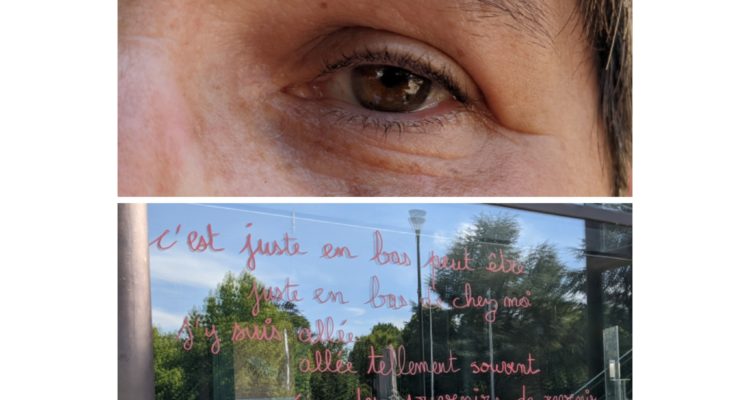 c'est juste en bas peut être
juste en bas de chez moi
j'y suis allée
allée tellement souvent
des souvenirs de